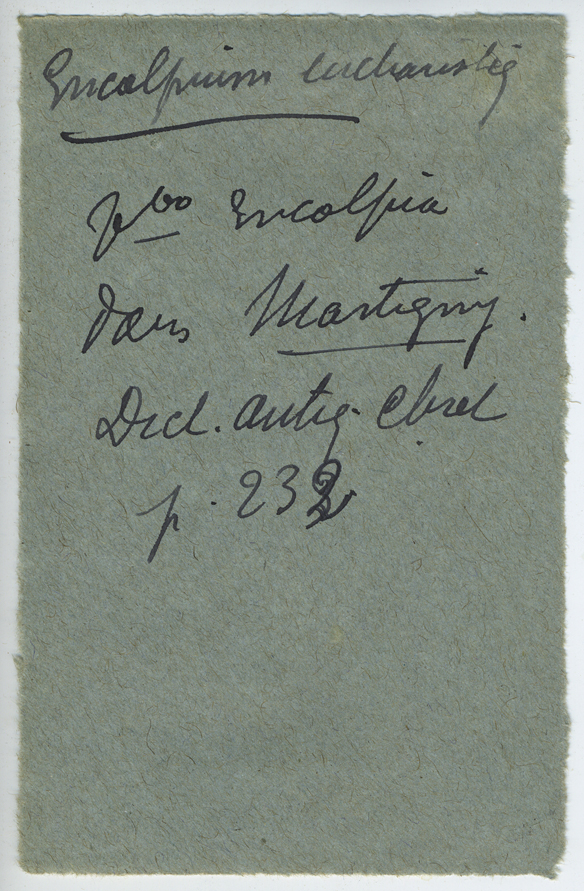 Encolpium eucharistiq
vbo Encolpia
dans Martigny.
Dict. antiq. chret
p. 232